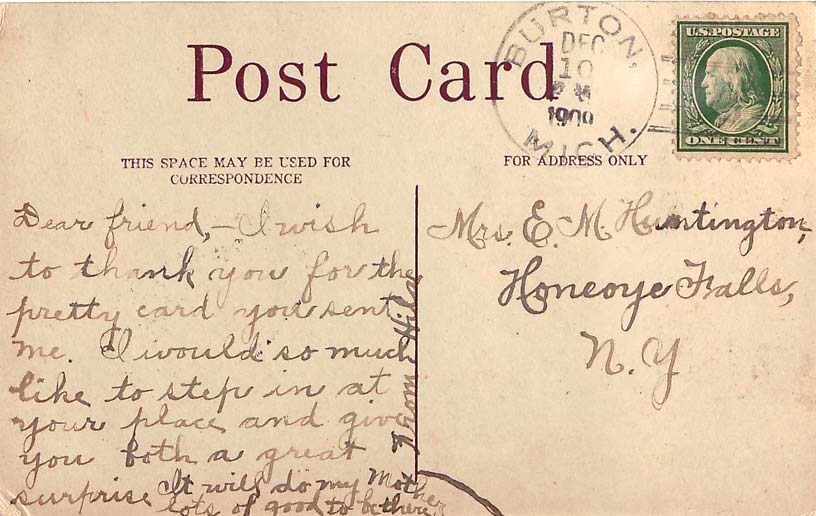 Post Card
BURTON,
DEC
10
1909
MICH.
U.S. POSTAGE
ONE CENT
THIS SPACE MAY BE USED FOR
CORRESPONDENCE
FOR ADDRESS ONLY
Dear friend,—I wish
to thank you for the
pretty card you sent
me. I would so much
like to step in at
your place and give
you both a great
surprise. It will do my Mother
lots of good to be there
Mrs. E. M. Huntington,
Honeoye Falls,
N. Y